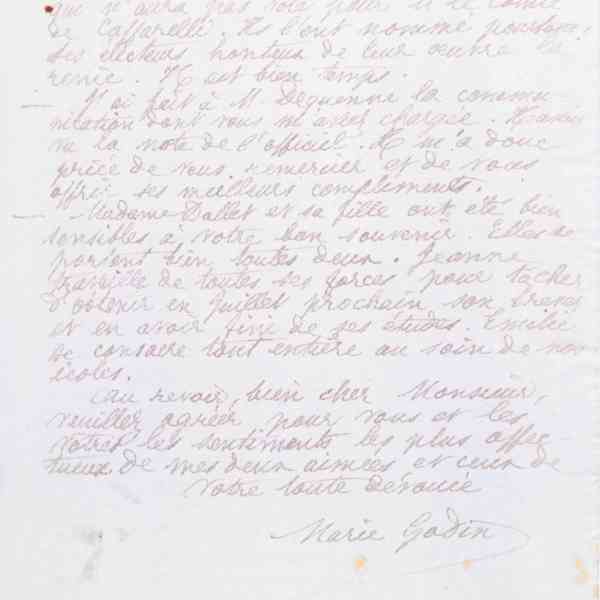 qui n'aura pas voté pour M. le Comte
de Caffarelli. Ils l'ont nommé pourtant,
ses électeurs honteux de leur œuvre la
renie. Il est bien temps.
J'ai fait à M. Dequenne la commu-
nication dont vous m'avez chargée. Il avait
vu la note de l'officiel. Il m'a donc
priée de vous remercier et de vous
offrir ses meilleurs compliments.
Madame Dallet et sa fille ont été bien
sensibles à votre bon souvenir. Elles se
portent bien toutes deux. Jeanne
travaille de toutes ses forces pour tâcher
d'obtenir en Juillet prochain son brevet
et en avoir fini de ses études. Emilie
se consacre tout entière au soin de nos
écoles.
Au revoir, bien cher Monsieur,
veuillez agréer pour vous et les
vôtres les sentiments les plus affec-
tueux de mes deux aimées et ceux de
votre toute dévouée
Marie Godin